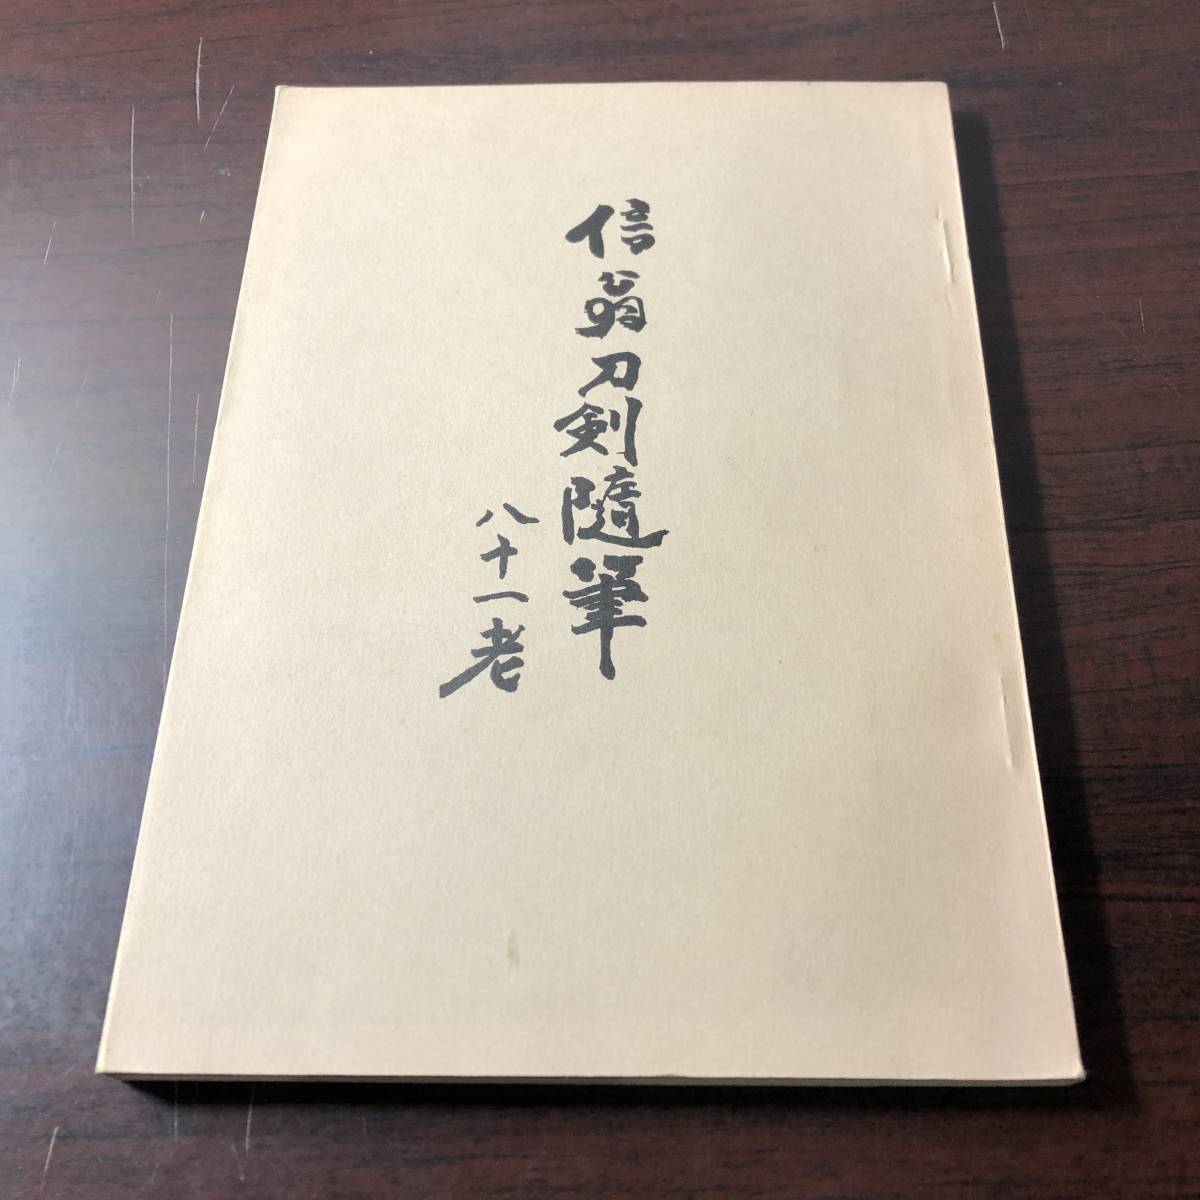 信翁刀剣随筆
八十一老